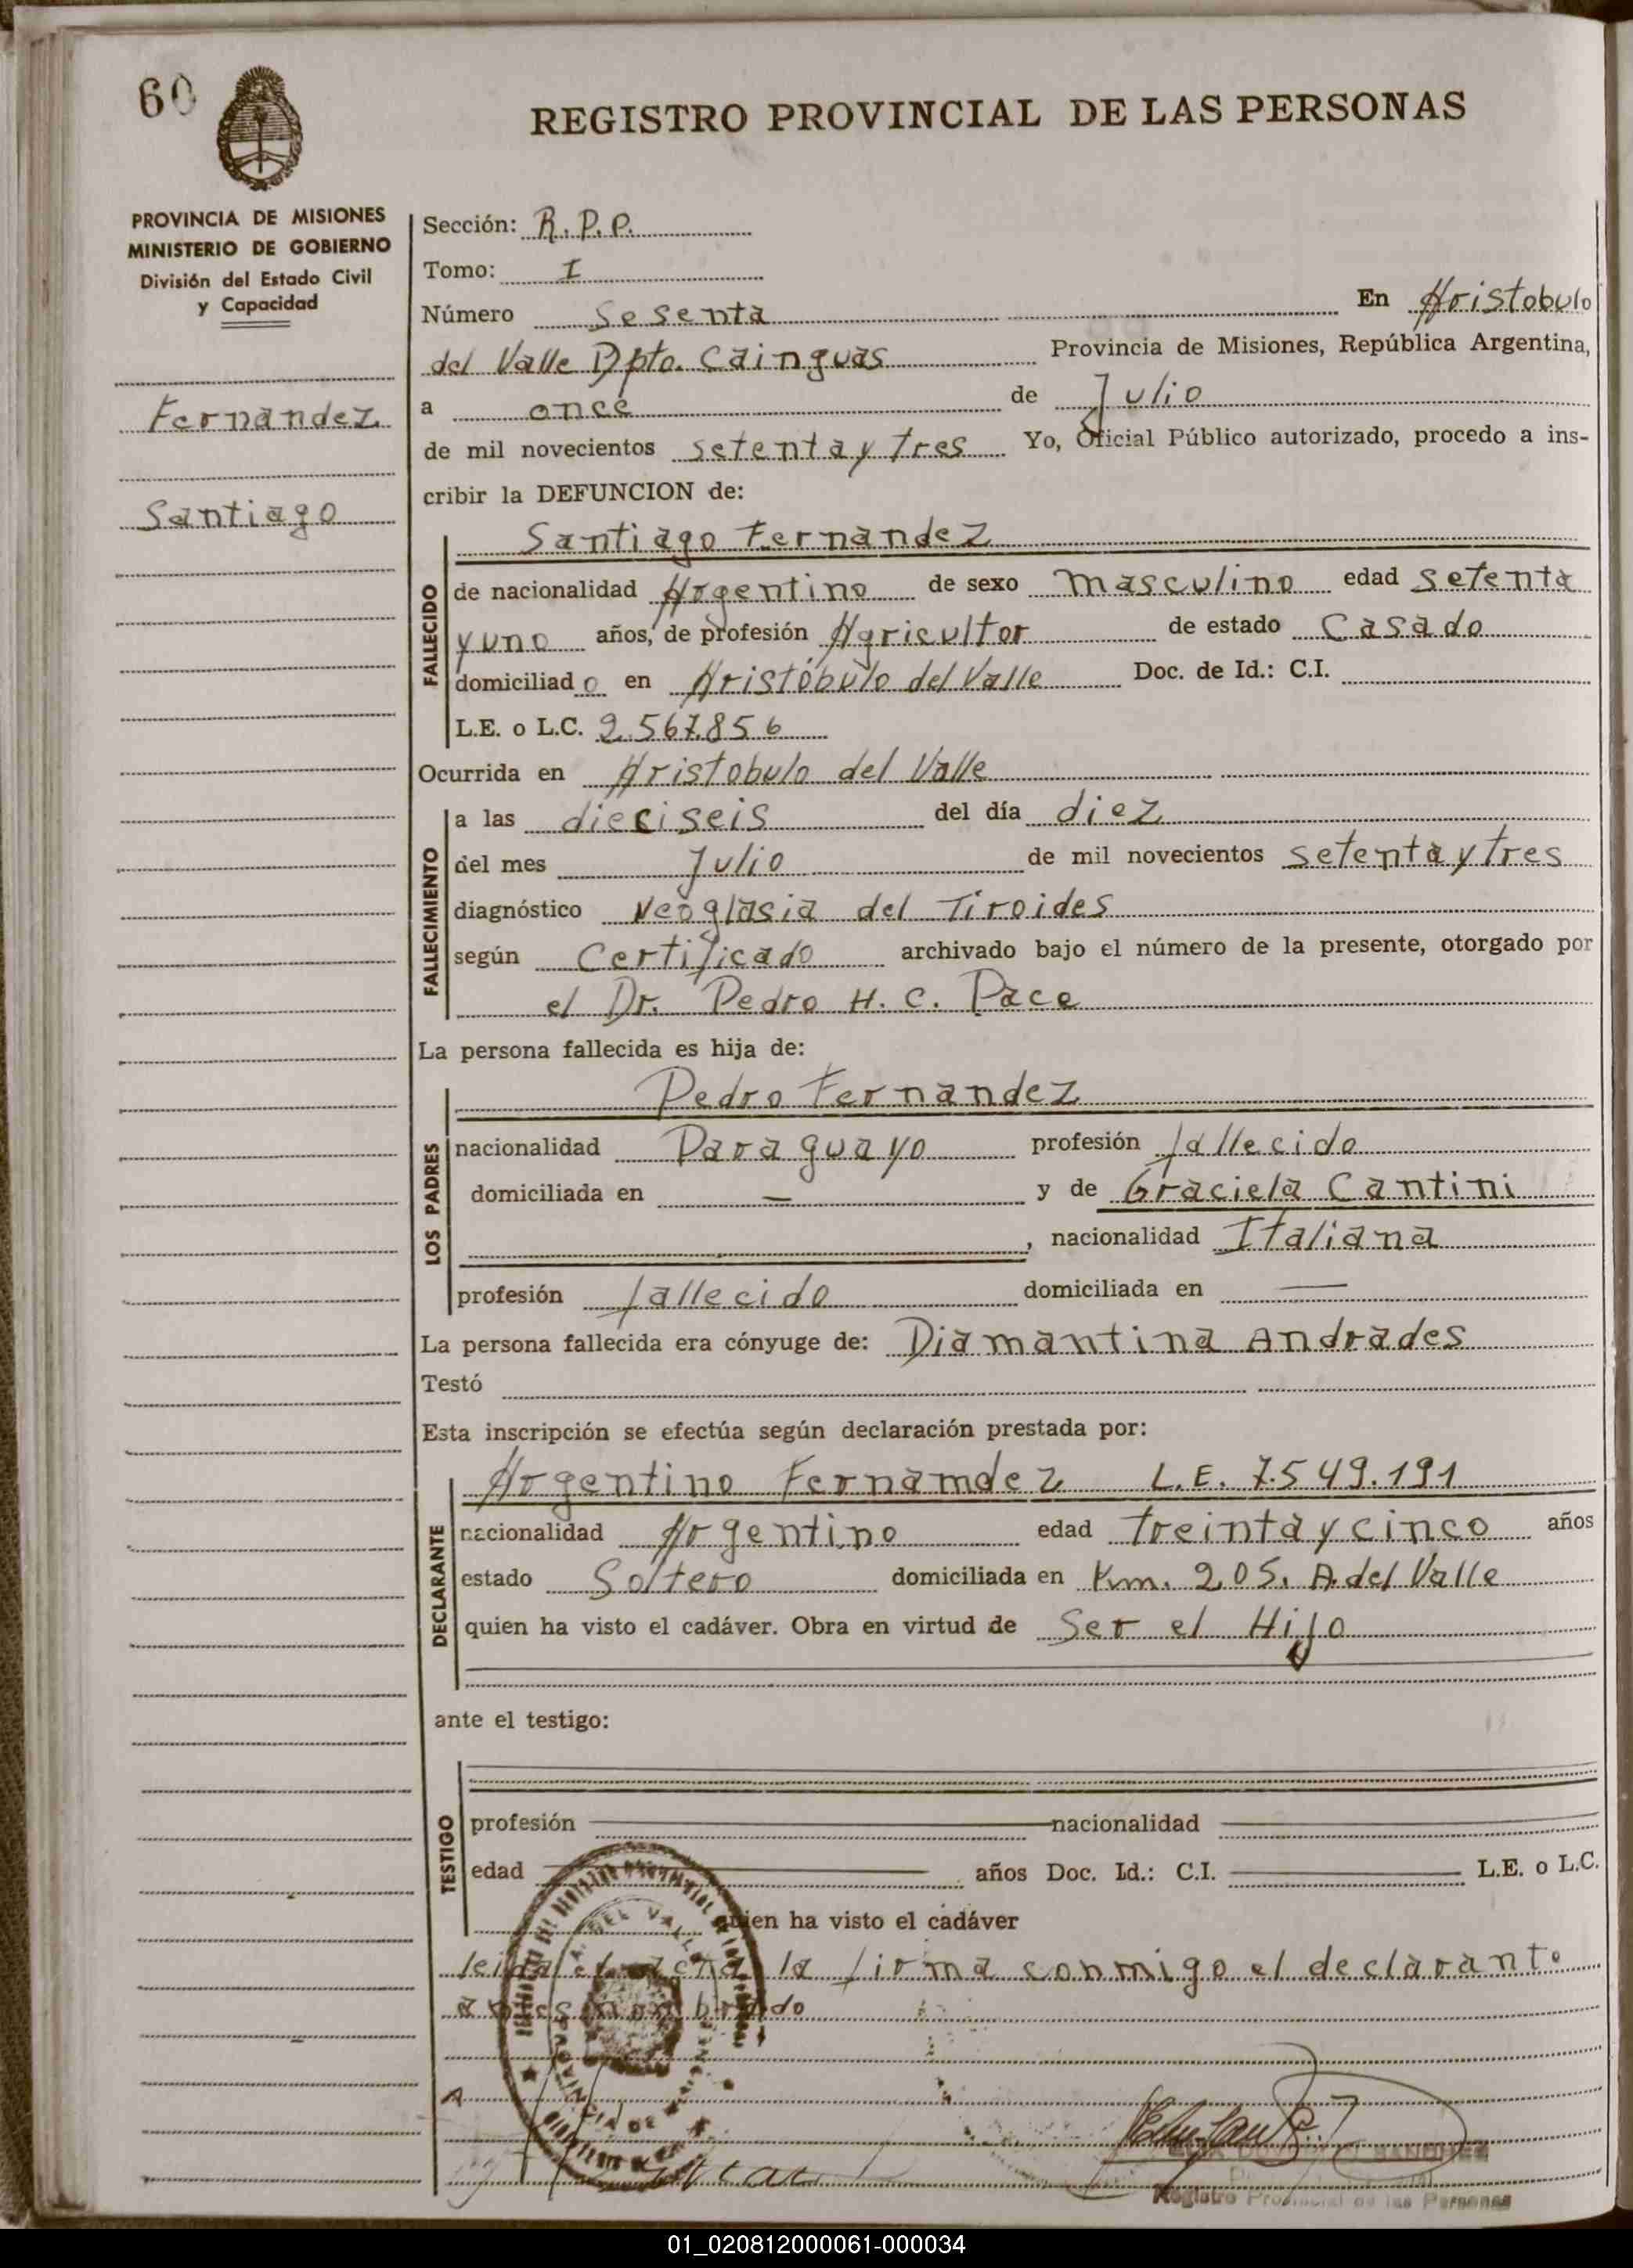 60
REGISTRO PROVINCIAL DE LAS PERSONAS
PROVINCIA DE MISIONES
MINISTERIO DE GOBIERNO
División del Estado Civil
y Capacidad
Fernandez
Santiago
Sección: R.P.P.
Tomo: I
Número Sesenta En Aristobulo
del Valle Dpto. Cainguas Provincia de Misiones, República Argentina,
a once de Julio
de mil novecientos setenta y tres Yo, Oficial Público autorizado, procedo a ins-
cribir la DEFUNCION de:
Santiago Fernandez
FALLECIDO
de nacionalidad Argentino de sexo masculino edad setenta
y uno años, de profesión Agricultor de estado Casado
domiciliado en Aristóbulo del Valle Doc. de Id.: C.I.
L.E. o L.C. 2.567.856
Ocurrida en Aristobulo del Valle
FALLECIMIENTO
a las dieciseis del día diez
del mes Julio de mil novecientos setenta y tres
diagnóstico Neoglasia del Tiroides
según Certificado archivado bajo el número de la presente, otorgado por
el Dr. Pedro H. C. Pace
La persona fallecida es hija de:
LOS PADRES
Pedro Fernandez
nacionalidad Paraguayo profesión fallecido
domiciliada en — y de Graciela Cantini
, nacionalidad Italiana
profesión fallecido domiciliada en —
La persona fallecida era cónyuge de: Diamantina Andrades
Testó
Esta inscripción se efectúa según declaración prestada por:
DECLARANTE
Argentino Fernamdez L.E. 7.549.191
nacionalidad Argentino edad treinta y cinco años
estado Soltero domiciliada en Km. 205. A. del Valle
quien ha visto el cadáver. Obra en virtud de Ser el Hijo
ante el testigo:
TESTIGO
profesión nacionalidad
edad años Doc. Id.: C.I. L.E. o L.C.
quien ha visto el cadáver
leida el acta la firma conmigo el declarante
antes nombrado
Registro Provincial de las Personas
01_020812000061-000034